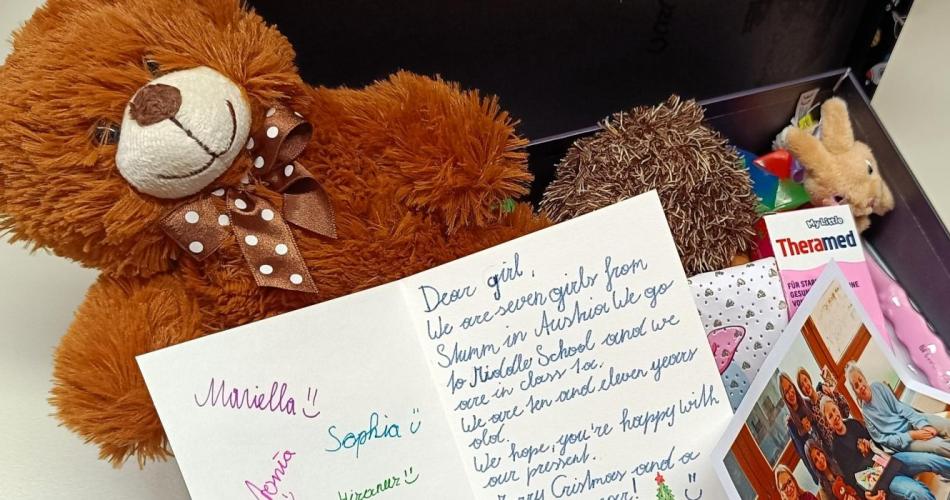 Mariella
Sophia
Hiranur
Dear girl,
We are seven girls from
Stumm in Austria. We go
to Middle School and we
are in class 1a.
We are ten and eleven years
old.
We hope, you're happy with
our pressent.
Cristmas and a
My Little
Theramed
FÜR